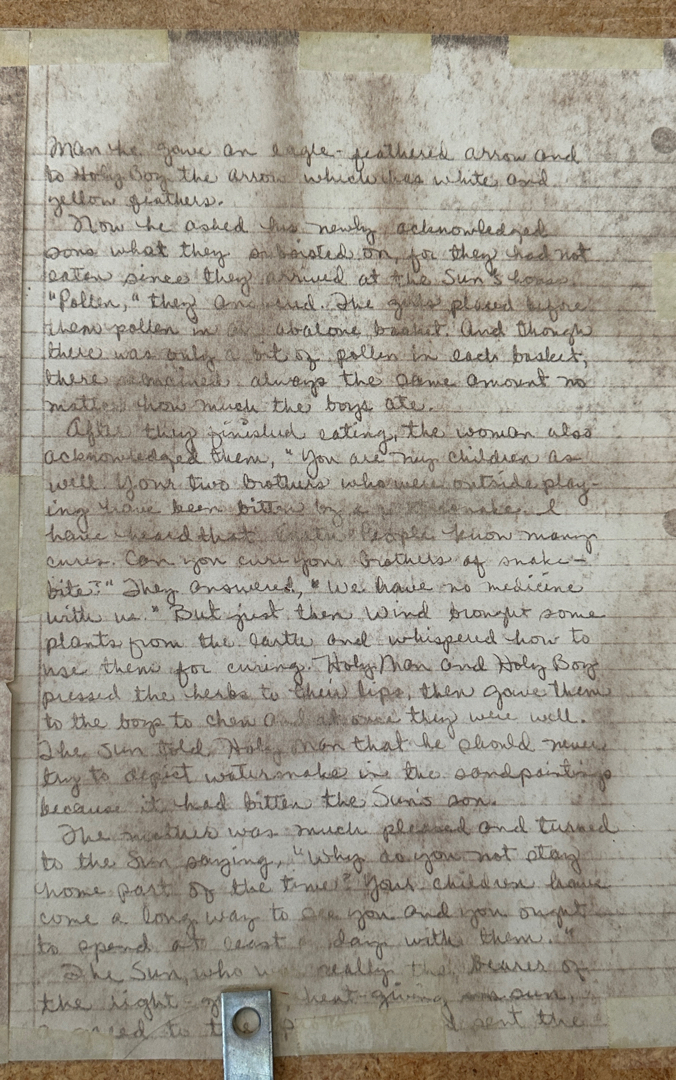 Man he gave an eagle-feathered arrow and
to Holy Boy the arrow which has white and
yellow feathers.
Now he asked his newly acknowledged
sons what they subsisted on, for they had not
eaten since they arrived at the Sun's house.
"Pollen," they The girls placed before
them pollen in an abalone basket. And though
there was only a bit of pollen in each basket,
there remained always the same amount no
matter how much the boys ate.
After they finished eating, the woman also
acknowledged them, "You are my children as
well. Your two brothers who were outside play-
ing have been bitten by a I
have heard that Earth People know many
cures. Can you cure your brothers of snake-
bite?" They answered, "We have no medicine
with us." But just then Wind brought some
plants from the earth and whispered how to
use them for curing. Holy Man and Holy Boy
pressed the herbs to their lips, then gave them
to the boys to chew and at once they were well.
The Sun told Holy Man that he should never
try to depict watersnake in the sandpaintings
because it had bitten the Sun's son.
The mother was much pleased and turned
to the Sun saying, "Why do you not stay
home part of the time? Your children have
come a long way to see you and you ought
to spend at least a day with them."
The Sun, who was really the Bearer of
the light- heat-giving sun,
agreed to sent the